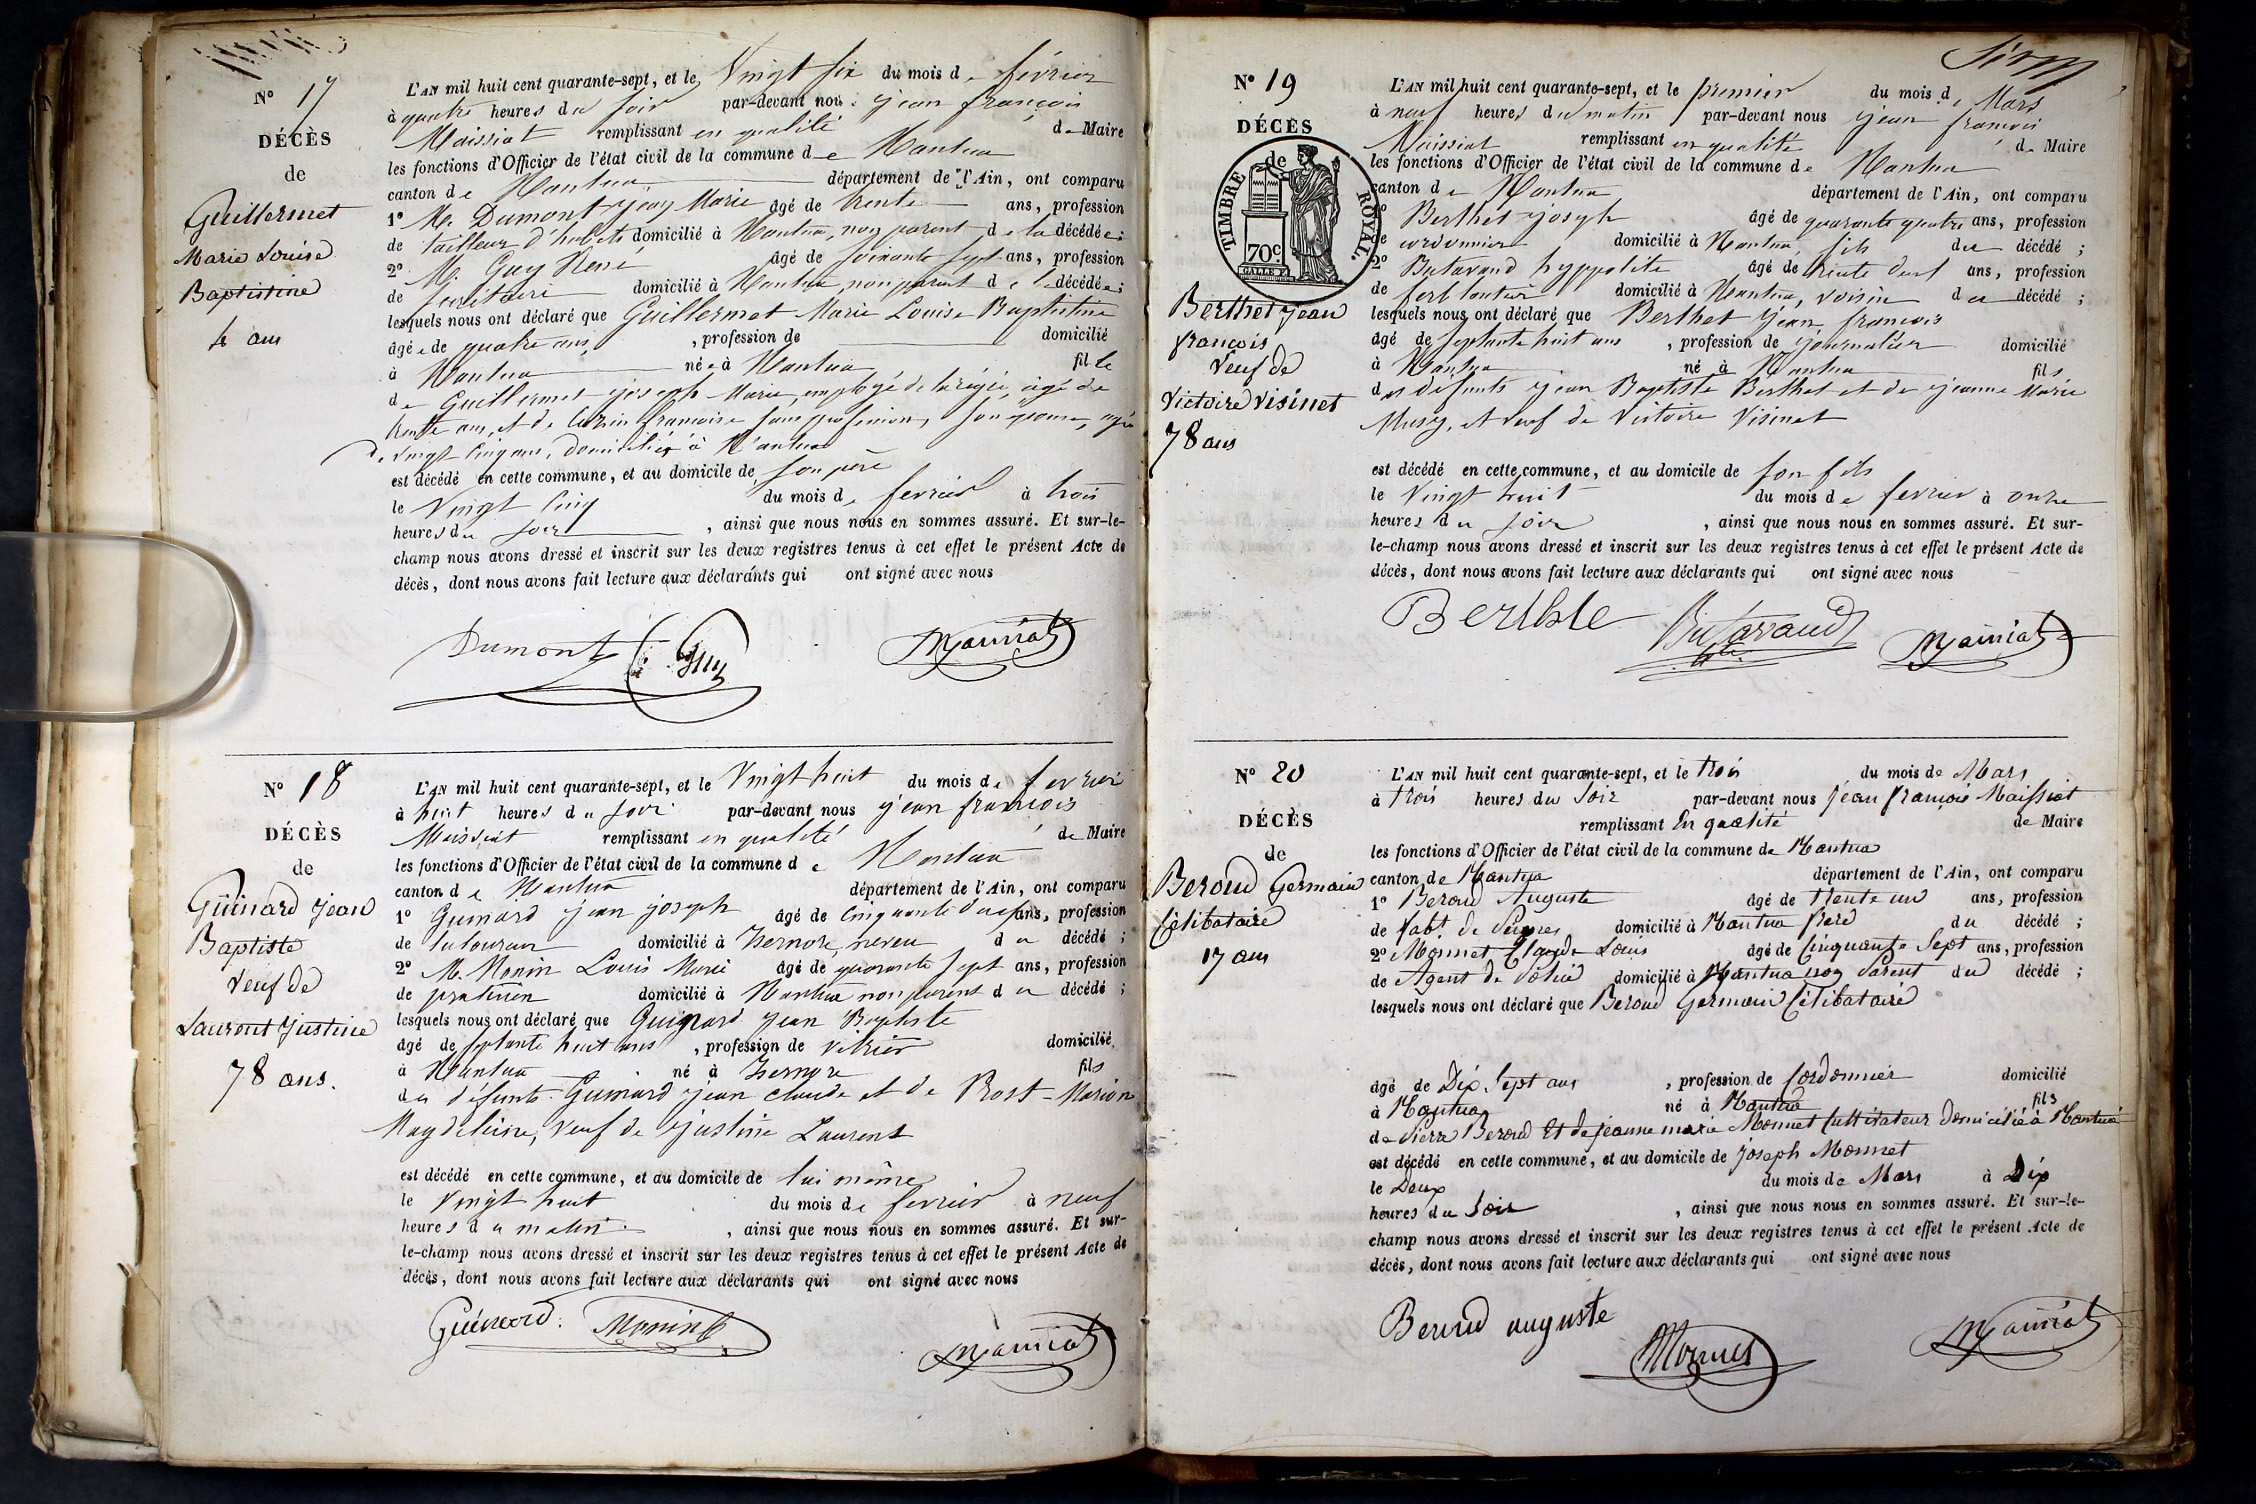 N° 17
DÉCÈS
de
Guillermet
Marie Louise
Baptistine
4 ans
L'AN mil huit cent quarante-sept, et le Vingt six du mois de février
à quatre heures du soir par-devant nous jean françois
Maissiat remplissant en qualité de Maire
les fonctions d'Officier de l'état civil de la commune de Nantua
canton de Nantua département de l'Ain, ont comparu
1° M. Dumont jean Marie âgé de trente ans, profession
de tailleur d'habits domicilié à Nantua, non parent de la décédée;
2° M. Guy René âgé de soixante sept ans, profession
de domicilié à Nantua, non parent de la décédée;
lesquels nous ont déclaré que Guillermet Marie Louise Baptistine
âgée de quatre ans, profession de domicilié
à Nantua née à Nantua fille
de Guillermet joseph Marie, employé de la régie, âgé de
trente ans, et de françoise sans profession, son épouse, agée
de vingt cinq ans, domiciliés à Nantua
est décédé en cette commune, et au domicile de son père
le Vingt cinq du mois de fevrier à trois
heures du soir, ainsi que nous nous en sommes assuré. Et sur-le-
champ nous avons dressé et inscrit sur les deux registres tenus à cet effet le présent Acte de
décès, dont nous avons fait lecture aux déclarants qui ont signé avec nous
Dumont Guy Maissiat
N° 18
DÉCÈS
de
Guinard jean
Baptiste
Veuf de
Laurent justine
78 ans.
L'AN mil huit cent quarante-sept, et le Vingt huit du mois de fevrier
à huit heures du soir par-devant nous jean françois
Maissiat remplissant en qualité de Maire
les fonctions d'Officier de l'état civil de la commune de Nantua
canton de Nantua département de l'Ain, ont comparu
1° Guinard jean joseph âgé de cinquante deux ans, profession
de laboureur domicilié à Izernore, neveu du décédé;
2° M. Monin Louis Marie âgé de quarante sept ans, profession
de praticien domicilié à Nantua non parent du décédé;
lesquels nous ont déclaré que Guinard jean Baptiste
âgé de septante huit ans, profession de vitrier domicilié
à Nantua né à Izernore fils
du défunts Guinard jean claude et de Rost-Marion
Magdeleine, veuf de justine Laurent
est décédé en cette commune, et au domicile de lui même
le Vingt huit du mois de fevrier à neuf
heures du matin, ainsi que nous nous en sommes assuré. Et sur-
le-champ nous avons dressé et inscrit sur les deux registres tenus à cet effet le présent Acte de
décès, dont nous avons fait lecture aux déclarants qui ont signé avec nous
Guinard Monin Maissiat
N° 19
DÉCÈS
de
TIMBRE ROYAL
70c.
Berthet jean
françois
Veuf de
Victoire Visinet
78 ans
L'AN mil huit cent quarante-sept, et le premier du mois de Mars
à neuf heures du matin par-devant nous jean françois
Maissiat remplissant en qualité de Maire
les fonctions d'Officier de l'état civil de la commune de Nantua
canton de Nantua département de l'Ain, ont comparu
1° Berthet joseph âgé de quarante quatre ans, profession
de cordonnier domicilié à Nantua, fils du décédé;
2° Butavand hyppolite âgé de trente deux ans, profession
de ferblantier domicilié à Nantua, voisin du décédé;
lesquels nous ont déclaré que Berthet jean françois
âgé de septante huit ans, profession de journalier domicilié
à Nantua né à Nantua fils
des défunts jean Baptiste Berthet et de jeanne Marie
Musy, et veuf de Victoire Visinet
est décédé en cette commune, et au domicile de son fils
le Vingt huit du mois de fevrier à onze
heures du soir, ainsi que nous nous en sommes assuré. Et sur-
le-champ nous avons dressé et inscrit sur les deux registres tenus à cet effet le présent Acte de
décès, dont nous avons fait lecture aux déclarants qui ont signé avec nous
Butavand Maissiat
N° 20
DÉCÈS
de
Beroud Germain
Célibataire
17 ans
L'AN mil huit cent quarante-sept, et le trois du mois de Mars
à trois heures du soir par-devant nous jean françois Maissiat
remplissant En qualité de Maire
les fonctions d'Officier de l'état civil de la commune de Nantua
canton de Nantua département de l'Ain, ont comparu
1° Beroud Auguste âgé de trente un ans, profession
de fabt. de Peignes domicilié à Nantua frere du décédé;
2° Monnet Claude Louis âgé de cinquante Sept ans, profession
de Agent de Police domicilié à Nantua non Parent du décédé;
lesquels nous ont déclaré que Beroud Germain Célibataire
âgé de Dix Sept ans, profession de Cordonnier domicilié
à Nantua né à Nantua fils
de Pierre Beroud Et de jeanne marie Monnet Cultivateur domiciliés à Nantua
est décédé en cette commune, et au domicile de joseph Monnet
le Deux du mois de Mars à Dix
heures du Soir, ainsi que nous nous en sommes assuré. Et sur-le-
champ nous avons dressé et inscrit sur les deux registres tenus à cet effet le présent Acte de
décès, dont nous avons fait lecture aux déclarants qui ont signé avec nous
Beroud auguste Monnet Maissiat